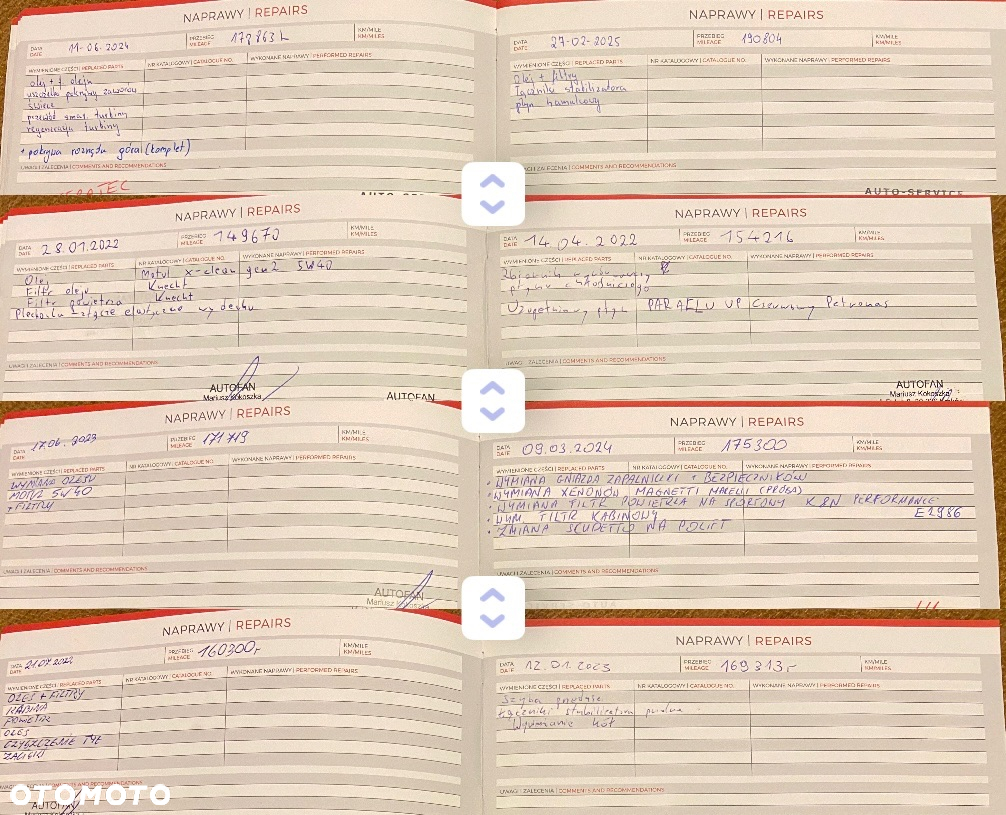 NAPRAWY | REPAIRS
DATA
DATE
11-06-2024
PRZEBIEG
MILEAGE
KM/MILE
KM/MILES
WYMIENIONE CZĘŚCI | REPLACED PARTS
NR KATALOGOWY | CATALOGUE NO.
WYKONANE NAPRAWY | PERFORMED REPAIRS
olej + f oleju
uszczelka pokrywy zaworów
świece
przewód smar. turbiny
regeneracja turbiny
+ pokrywa rozrządu góra (komplet)
UWAGI / ZALECENIA | COMMENTS AND RECOMMENDATIONS
AUTO-SER
NAPRAWY | REPAIRS
DATA
DATE
27-02-2025
PRZEBIEG
MILEAGE
190804
KM/MILE
KM/MILES
WYMIENIONE CZĘŚCI | REPLACED PARTS
NR KATALOGOWY | CATALOGUE NO.
WYKONANE NAPRAWY | PERFORMED REPAIRS
Olej + filtry
Łączniki stabilizatora
płyn hamulcowy
UWAGI / ZALECENIA | COMMENTS AND RECOMMENDATIONS
AUTO-SERVICE
NAPRAWY | REPAIRS
DATA
DATE
28.01.2022
PRZEBIEG
MILEAGE
149670
KM/MILE
KM/MILES
WYMIENIONE CZĘŚCI | REPLACED PARTS
NR KATALOGOWY | CATALOGUE NO.
WYKONANE NAPRAWY | PERFORMED REPAIRS
Olej Motul x-clean gen2 5W40
Filtr oleju Knecht
Filtr powietrza Knecht
wydechu
UWAGI / ZALECENIA | COMMENTS AND RECOMMENDATIONS
AUTOFAN
Mariusz Kokoszka
AUTOFAN
NAPRAWY | REPAIRS
DATA
DATE
14.04.2022
PRZEBIEG
MILEAGE
154216
KM/MILE
KM/MILES
WYMIENIONE CZĘŚCI | REPLACED PARTS
NR KATALOGOWY | CATALOGUE NO.
WYKONANE NAPRAWY | PERFORMED REPAIRS
Zbiornik wyrównawczy
płynu chłodniczego
Uzupełniony płyn PARAFLU UP Czerwony Petronas
UWAGI / ZALECENIA | COMMENTS AND RECOMMENDATIONS
AUTOFAN
Mariusz Kokoszka
NAPRAWY | REPAIRS
DATA
DATE
17.06.2023
PRZEBIEG
MILEAGE
171719
KM/MILE
KM/MILES
WYMIENIONE CZĘŚCI | REPLACED PARTS
NR KATALOGOWY | CATALOGUE NO.
WYKONANE NAPRAWY | PERFORMED REPAIRS
WYMIANA OLEJU
MOTUL 5W40
+ FILTRY
UWAGI / ZALECENIA | COMMENTS AND RECOMMENDATIONS
AUTOFAN
NAPRAWY | REPAIRS
DATA
DATE
09.03.2024
PRZEBIEG
MILEAGE
175300
KM/MILE
KM/MILES
WYMIENIONE CZĘŚCI | REPLACED PARTS
NR KATALOGOWY | CATALOGUE NO.
WYKONANE NAPRAWY | PERFORMED REPAIRS
• WYMIANA GNIAZDA ZAPALNICZKI + BEZPIECZNIKÓW
• WYMIANA XENONÓW MAGNETTI MARELLI
• WYMIANA FILTR POWIETRZA NA SPORTOWY K&N PERFORMANCE
E2986
• WYM. FILTR KABINOWY
• ZMIANA SCUDETTO NA POLIFT
UWAGI / ZALECENIA | COMMENTS AND RECOMMENDATIONS
NAPRAWY | REPAIRS
DATA
DATE
21.07.2022
PRZEBIEG
MILEAGE
160300
KM/MILE
KM/MILES
WYMIENIONE CZĘŚCI | REPLACED PARTS
NR KATALOGOWY | CATALOGUE NO.
WYKONANE NAPRAWY | PERFORMED REPAIRS
OLEJ + FILTRY
KABINA
POWIETRZE
OLEJ
CZYSZCZENIE TYŁ
ZACISKI
UWAGI / ZALECENIA | COMMENTS AND RECOMMENDATIONS
AUTOFAN
OTOMOTO
NAPRAWY | REPAIRS
DATA
DATE
12.01.2023
PRZEBIEG
MILEAGE
169313
KM/MILE
KM/MILES
WYMIENIONE CZĘŚCI | REPLACED PARTS
NR KATALOGOWY | CATALOGUE NO.
WYKONANE NAPRAWY | PERFORMED REPAIRS
Szyba
Łączniki stabilizatora
kół
UWAGI / ZALECENIA | COMMENTS AND RECOMMENDATIONS